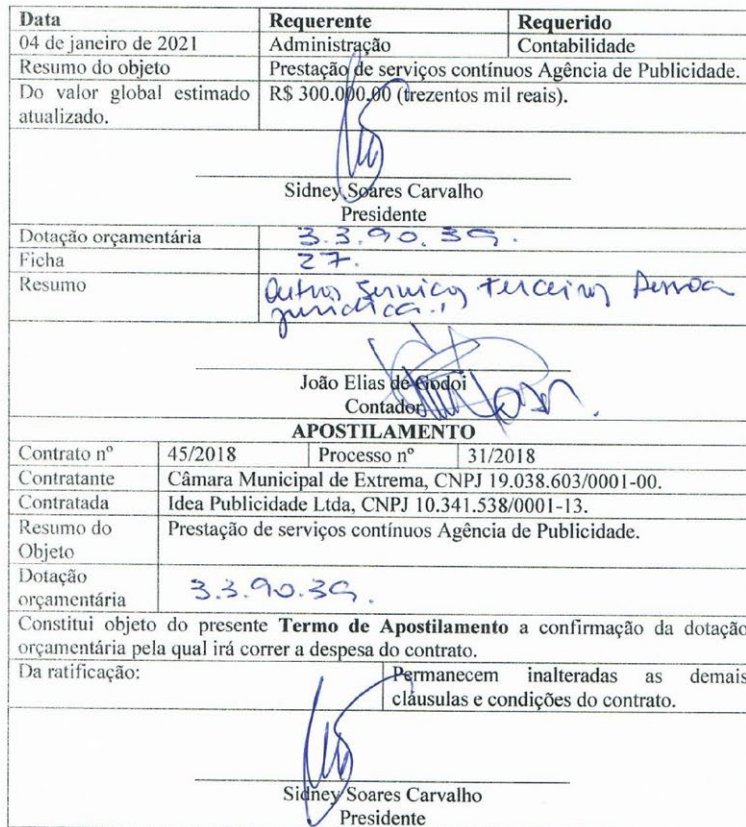 Data Requerente Requerido
04 de janeiro de 2021 Administração Contabilidade
Resumo do objeto Prestação de serviços contínuos Agência de Publicidade.
Do valor global estimado atualizado. R$ 300.000,00 (trezentos mil reais).
Sidney Soares Carvalho
Presidente
Dotação orçamentária 3.3.90.39.
Ficha 27.
Resumo Outros serviços terceiros Pessoa
jurídica.
João Elias de Godoi
Contador
APOSTILAMENTO
Contrato nº 45/2018 Processo nº 31/2018
Contratante Câmara Municipal de Extrema, CNPJ 19.038.603/0001-00.
Contratada Idea Publicidade Ltda, CNPJ 10.341.538/0001-13.
Resumo do Objeto Prestação de serviços contínuos Agência de Publicidade.
Dotação orçamentária 3.3.90.39.
Constitui objeto do presente Termo de Apostilamento a confirmação da dotação
orçamentária pela qual irá correr a despesa do contrato.
Da ratificação: Permanecem inalteradas as demais
cláusulas e condições do contrato.
Sidney Soares Carvalho
Presidente